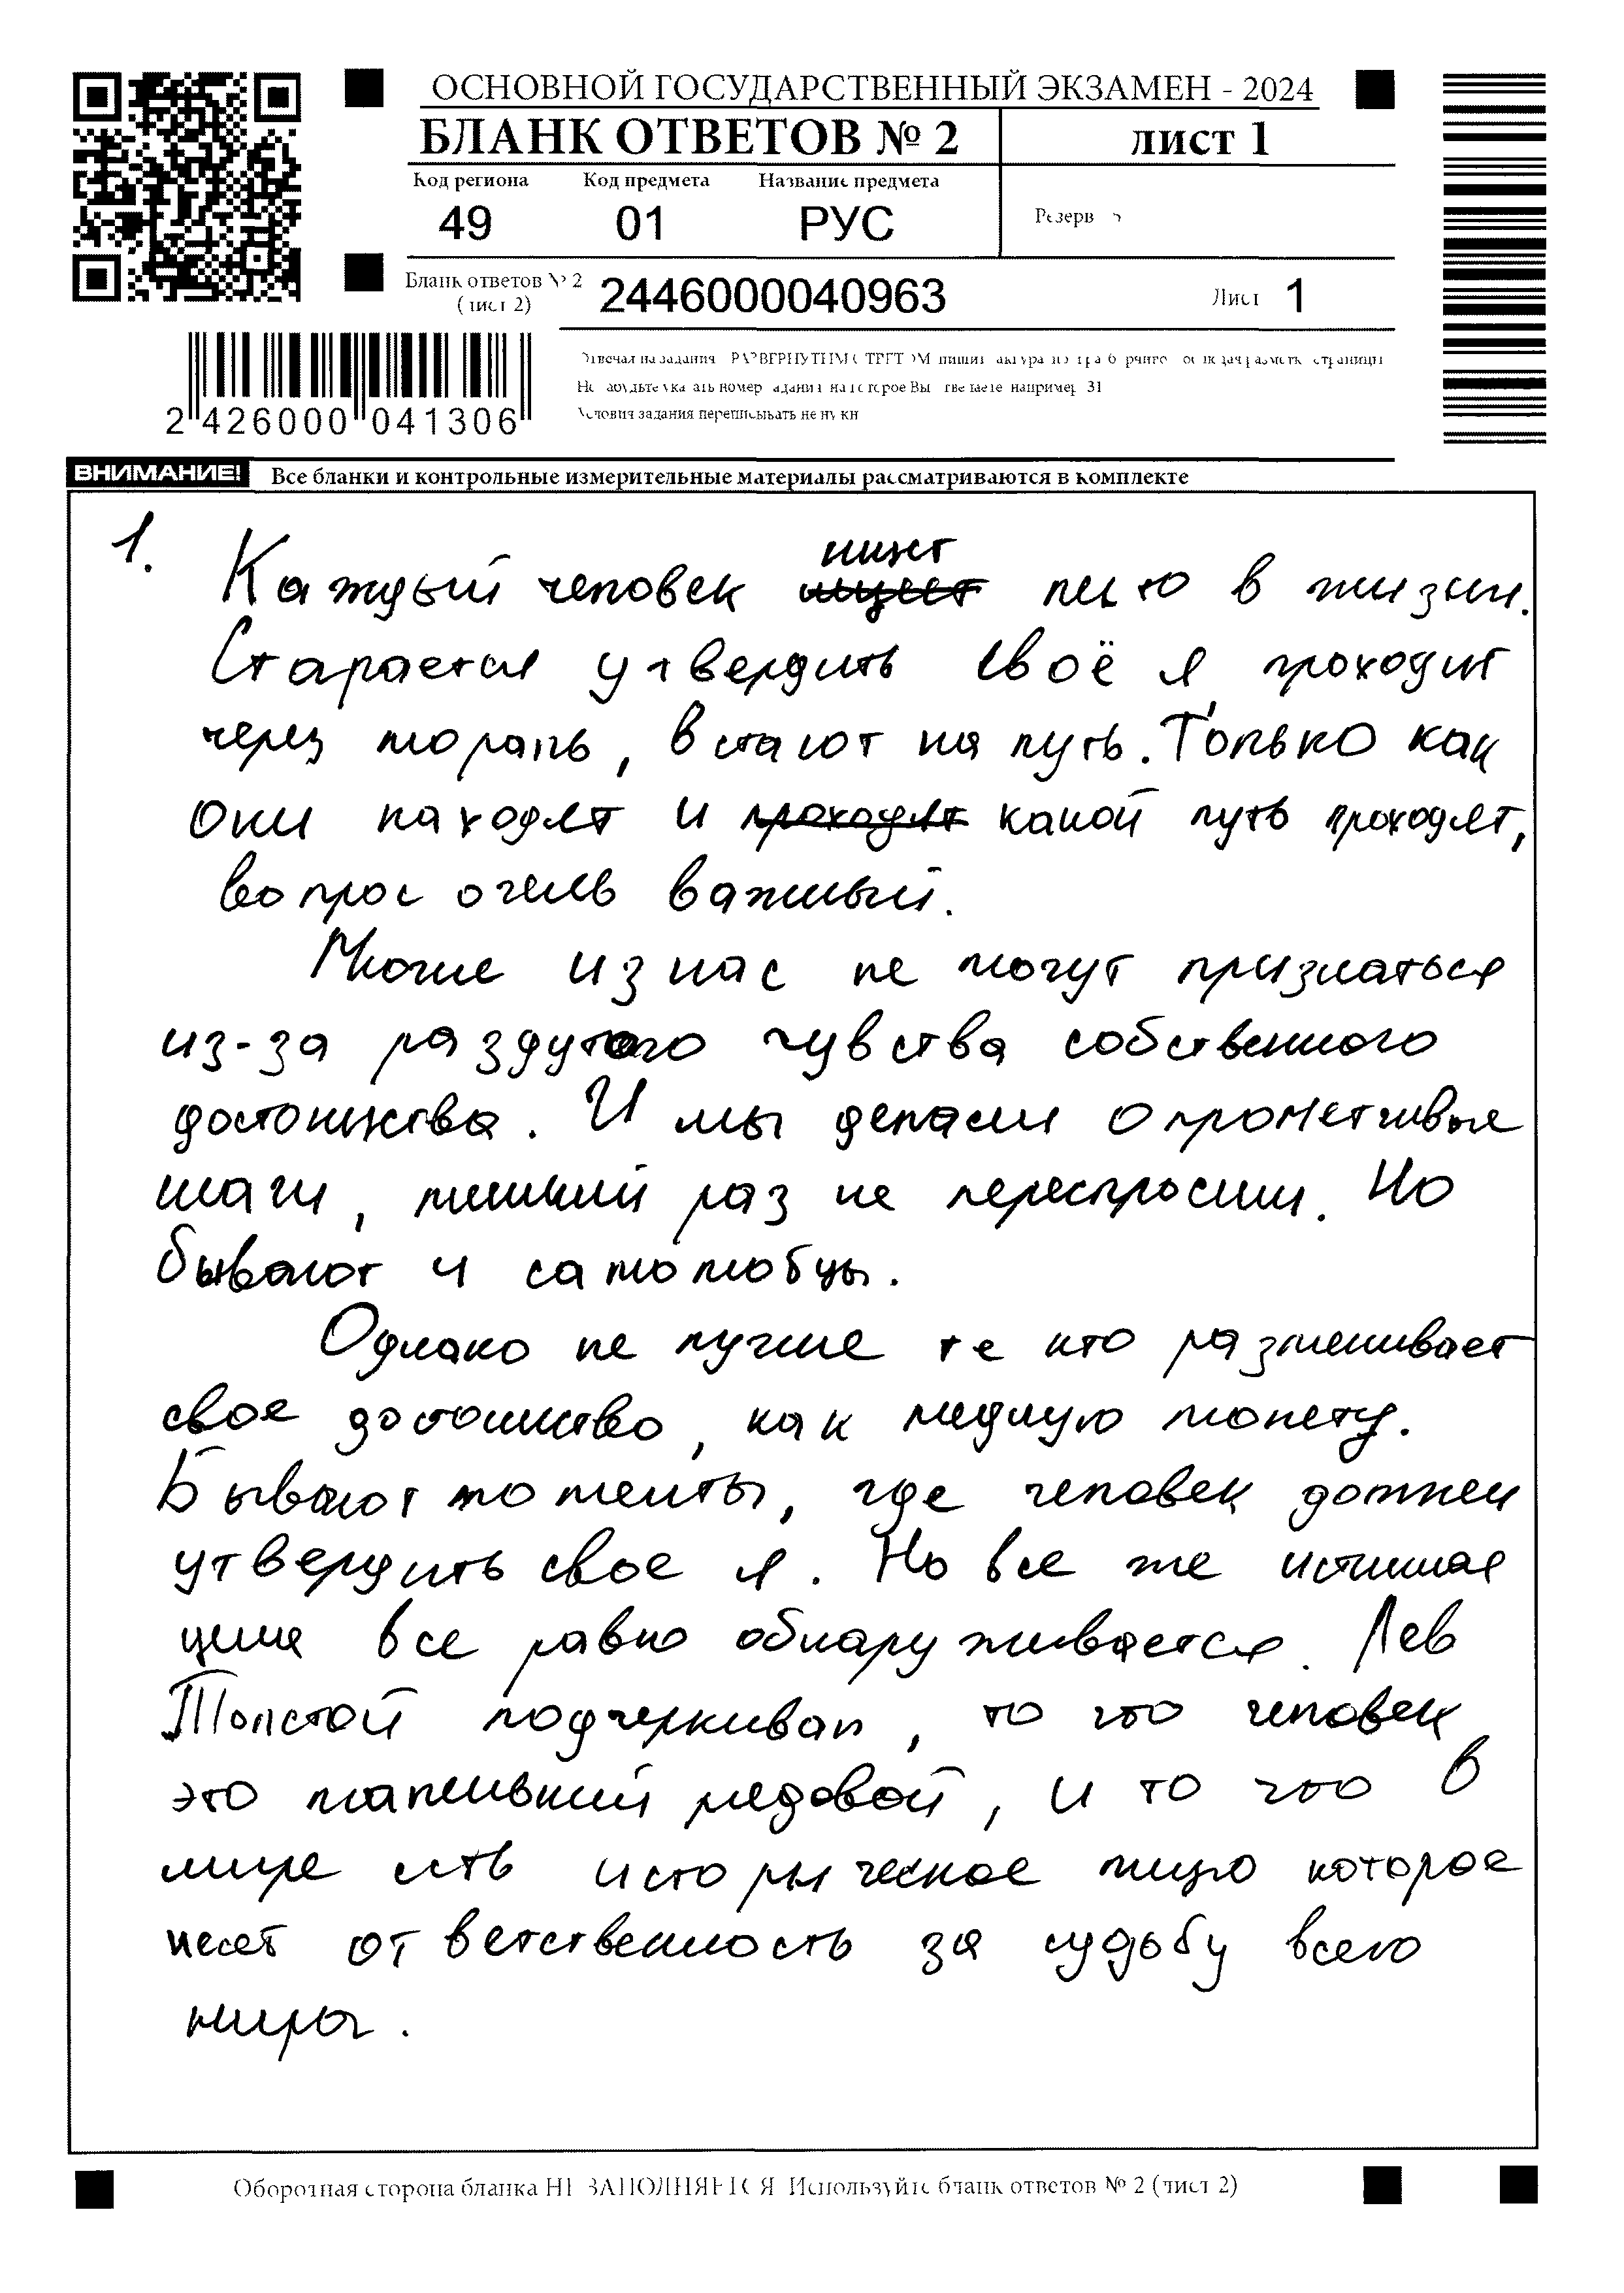 ОСНОВНОЙ ГОСУДАРСТВЕННЫЙ ЭКЗАМЕН - 2024
БЛАНК ОТВЕТОВ № 2 лист 1
Код региона Код предмета Название предмета
49 01 РУС Резерв
Бланк ответов № 2
(лист 2) 2446000040963 Лист 1
2 426000 041306
Условия задания переписывать не нужн
ВНИМАНИЕ! Все бланки и контрольные измерительные материалы рассматриваются в комплекте
1.
ищет
Каждый человек ищест в жизни.
Старается утвердить своё я, проходит
через мораль, встают на путь. Только как
они находят и проходят какой путь проходят,
вопрос очень важный.
Многие из нас не могут признаться
из-за раздутого чувства собственного
достоинства. И мы делаем опрометчивые
шаги, лишний раз не переспросим. Но
бывают и самолюбцы.
Однако не лучше те кто разменивает
свое достоинство, как медную монету.
Бывают моменты, где человек должен
утвердить свое я. Но все же истинная
цена все равно обнаруживается. Лев
Толстой подчеркивал, то что человек
это маленький рядовой, и то что в
мире есть историческое лицо которое
несет ответственность за судьбу всего
мира.
Оборотная сторона бланка НЕ ЗАПОЛНЯЕТСЯ. Используйте бланк ответов № 2 (лист 2)